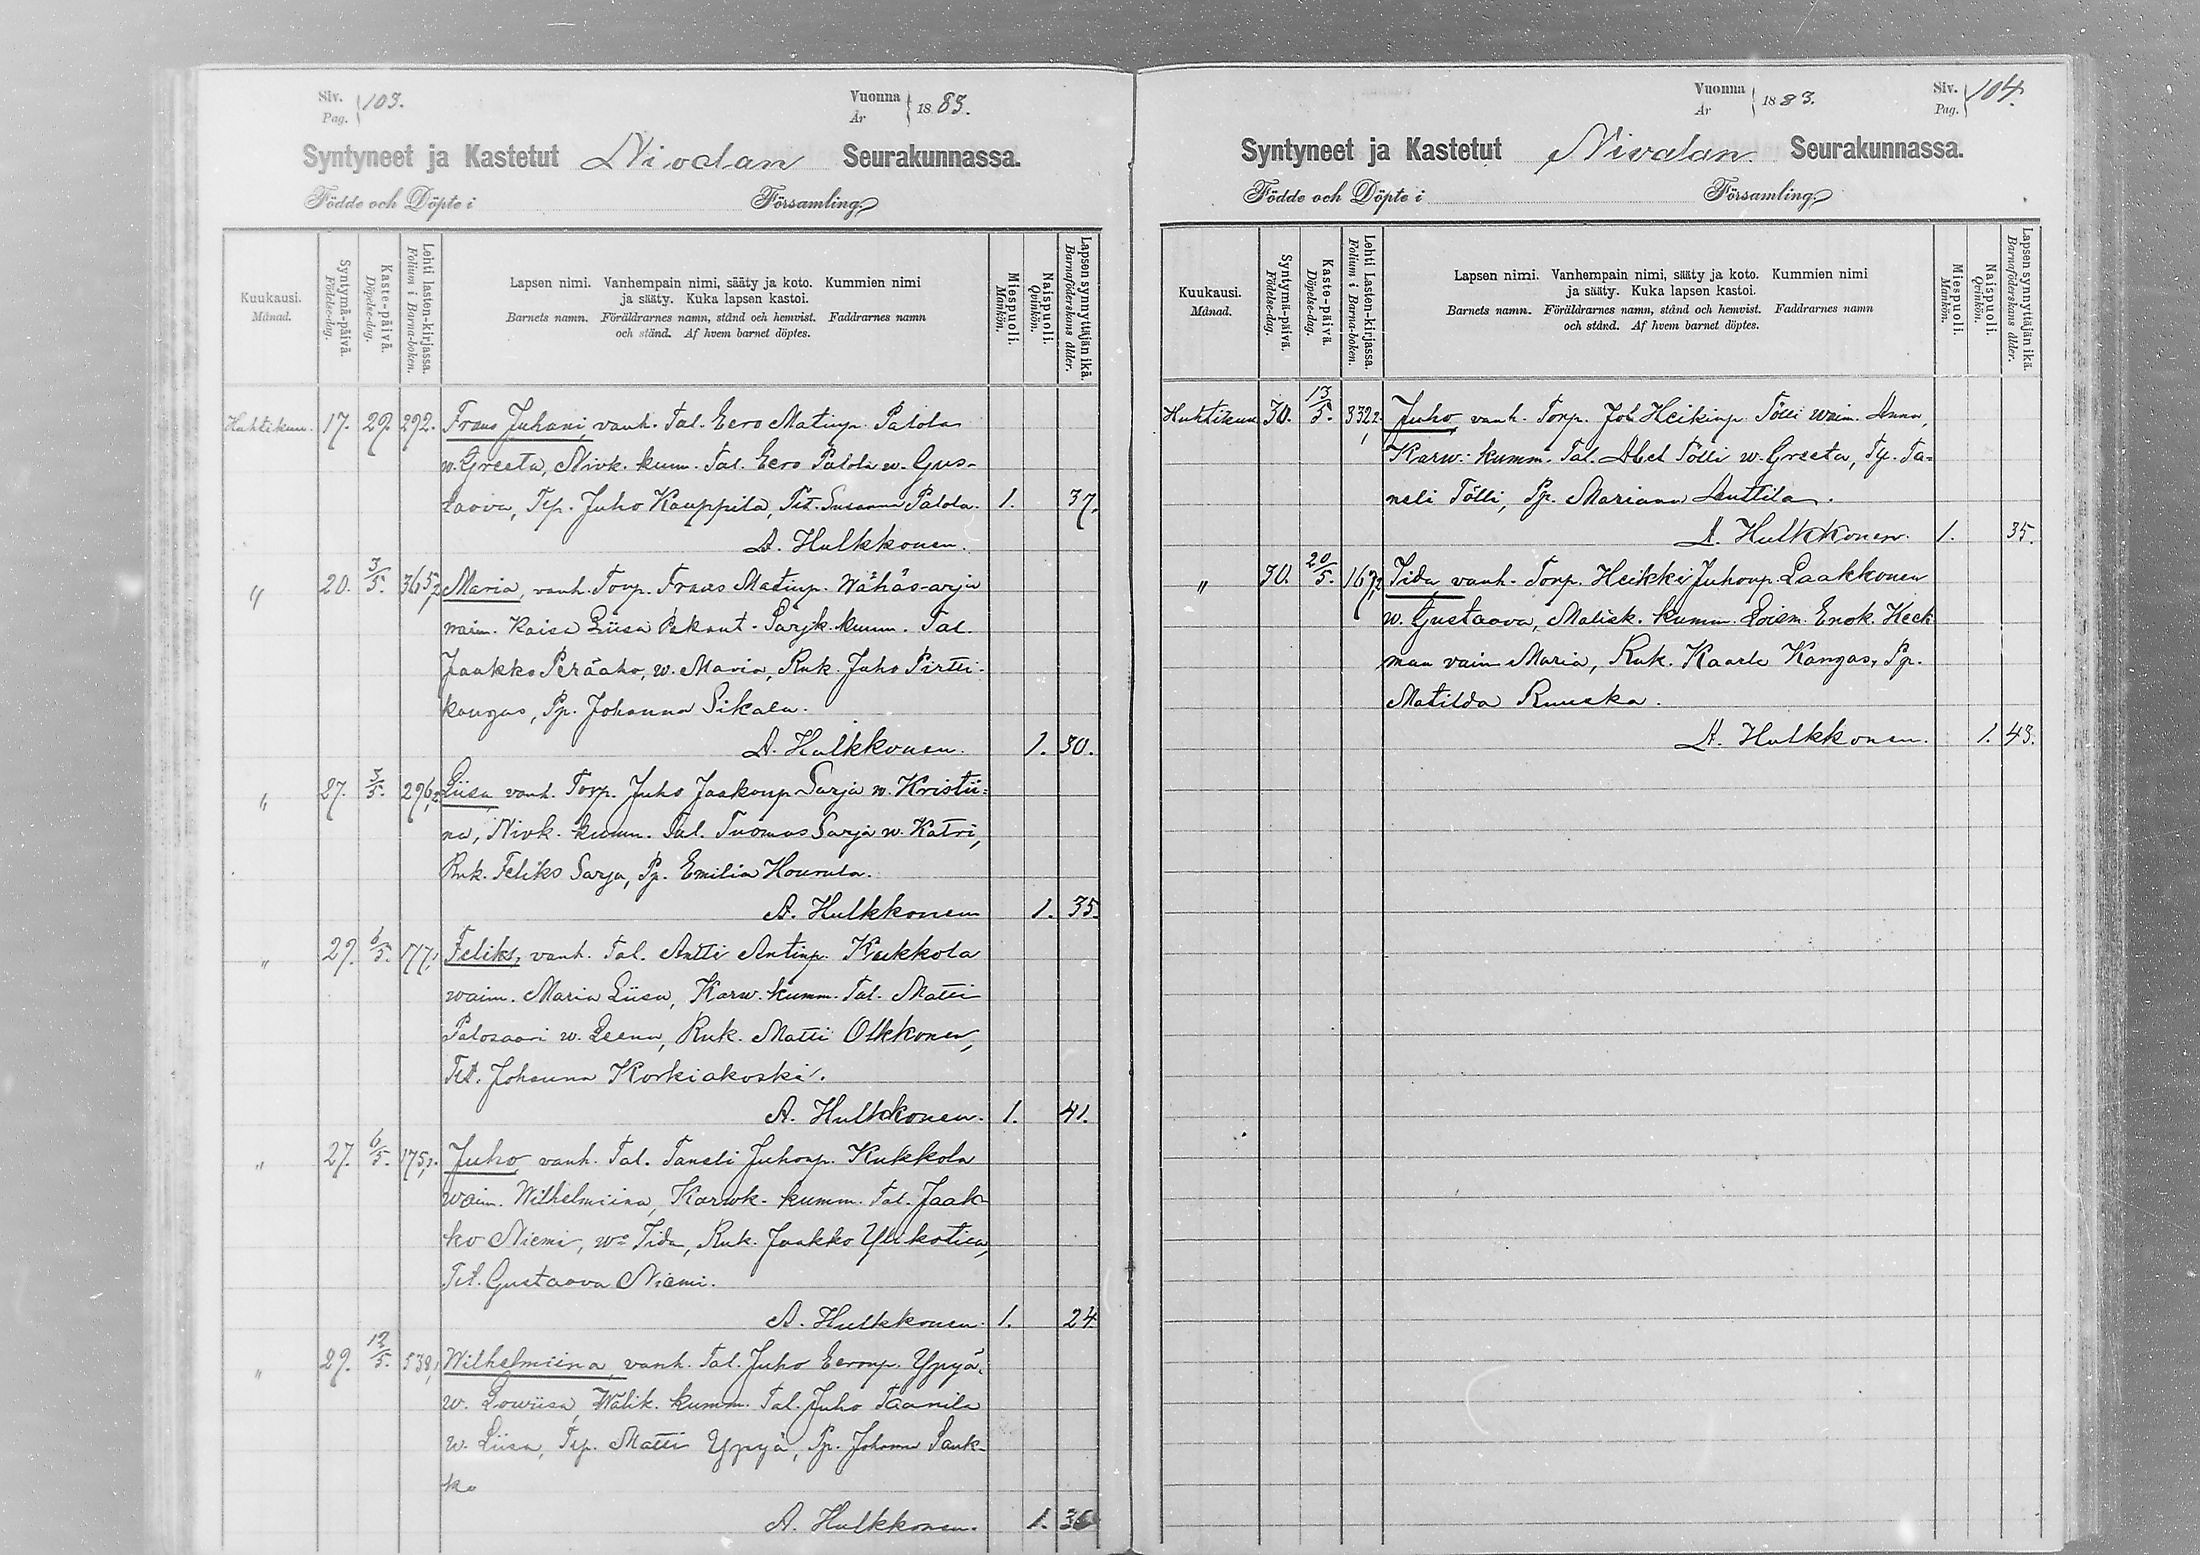 Siv. Pag. 103.
Vuonna År 1883.
Syntyneet ja Kastetut Nivalan Seurakunnassa.
Födde och Döpte i Församling.
Kuukausi. Månad.
Syntymä-päivä. Födelse-dag.
Kaste-päivä. Döpelse-dag.
Lehti lasten-kirjassa. Folium i Barna-boken.
Lapsen nimi. Vanhempain nimi, sääty ja koto. Kummien nimi
ja sääty. Kuka lapsen kastoi.
Barnets namn. Föräldrarnes namn, stånd och hemvist. Faddrarnes namn
och stånd. Af hvem barnet döptes.
Miespuoli. Mankön.
Naispuoli. Qvinkön.
Lapsen synnyttäjän ikä. Barnaföderskans ålder.
Huhtikuu. 17. 29. 292. Frans Juhani, vanh. Tal. Eero Matinp. Palola
w. Greeta, Nivk. kum. Tal. Eero Palola w. Gus-
taava, Tlp. Juho Kauppila, Tlt. Susanna Palola. 1. 37.
A. Hulkkonen.
" 20. 3/5. 365,2 Maria, vanh. Torp. Frans Matinp. Wähäs-arja
waim. Kaisa Liisa Sarjk. kumm. Tal.
Jaakko Peräaho, w. Maria, Rnk. Juho Pirtti-
kangas, Pp. Johanna Sikala.
A. Hulkkonen. 1. 30.
" 27. 5/5. 296,2 Liisa vanh. Torp. Juho Jaakonp Sarja w. Kristii-
na, Nivk. kumm. Tal. Tuomas Sarja w. Katri,
Rnk. Feliks Sarja, Pp. Emilia
A. Hulkkonen 1. 35.
" 29. 6/5. 177,1 Feliks, vanh. Tal. Antti Antinp. Kukkola
waim. Maria Liisa, Karw. kumm. Tal. Matti
Palosaari w. Leena, Rnk. Matti Olkkonen,
Tlt. Johanna Korkiakoski.
A. Hulkkonen. 1. 41.
" 27. 6/5. 175,2. Juho vanh. Tal. Taneli Juhonp. Kukkola
waim. Wilhelmiina, Karwk. kumm. Tal. Jaak-
ko Niemi, w. Iida, Rnk. Jaakko
Tlt. Gustaava Niemi.
A. Hulkkonen. 1. 24
" 29. 12/5. 538,1 Wilhelmiina, vanh. Tal. Juho Eeronp. Ypyä.
w. Lowiisa, Wälik. kumm. Tal. Juho Taanila
w. Liisa, Tlp. Matti Ypyä, Pp. Johanna Sauk-
ko
A. Hulkkonen. 1. 36
Vuonna År 1883.
Siv. Pag. 104.
Syntyneet ja Kastetut Nivalan Seurakunnassa.
Födde och Döpte i Församling.
Kuukausi. Månad.
Syntymä-päivä. Födelse-dag.
Kaste-päivä. Döpelse-dag.
Lehti Lasten-kirjassa. Folium i Barna-boken.
Lapsen nimi. Vanhempain nimi, sääty ja koto. Kummien nimi
ja sääty. Kuka lapsen kastoi.
Barnets namn. Föräldrarnes namn, stånd och hemvist. Faddrarnes namn
och stånd. Af hvem barnet döptes.
Miespuoli. Mankön.
Naispuoli. Qvinkön.
Lapsen synnyttäjän ikä. Barnaföderskans ålder.
Huhtikuu 30. 13/5. 332,2. Juho, vanh. Torp. Joh Heikinp Tölli waim. Anna,
Karw: kumm. Tal. Abel Tölli w. Greeta, Tp. Ta-
neli Tölli, Pp. Mariana Anttila.
A. Hulkkonen. 1. 35.
" 30. 20/5. 167,2 Iida, vanh. Torp. Heikki Juhonp. Laakkonen
w. Gustaava, Malisk. kumm. Loism. Enok. Heck
man vaim Maria, Rnk. Kaarlo Kangas, Pp.
Matilda Ruuska.
A. Hulkkonen. 1. 43.